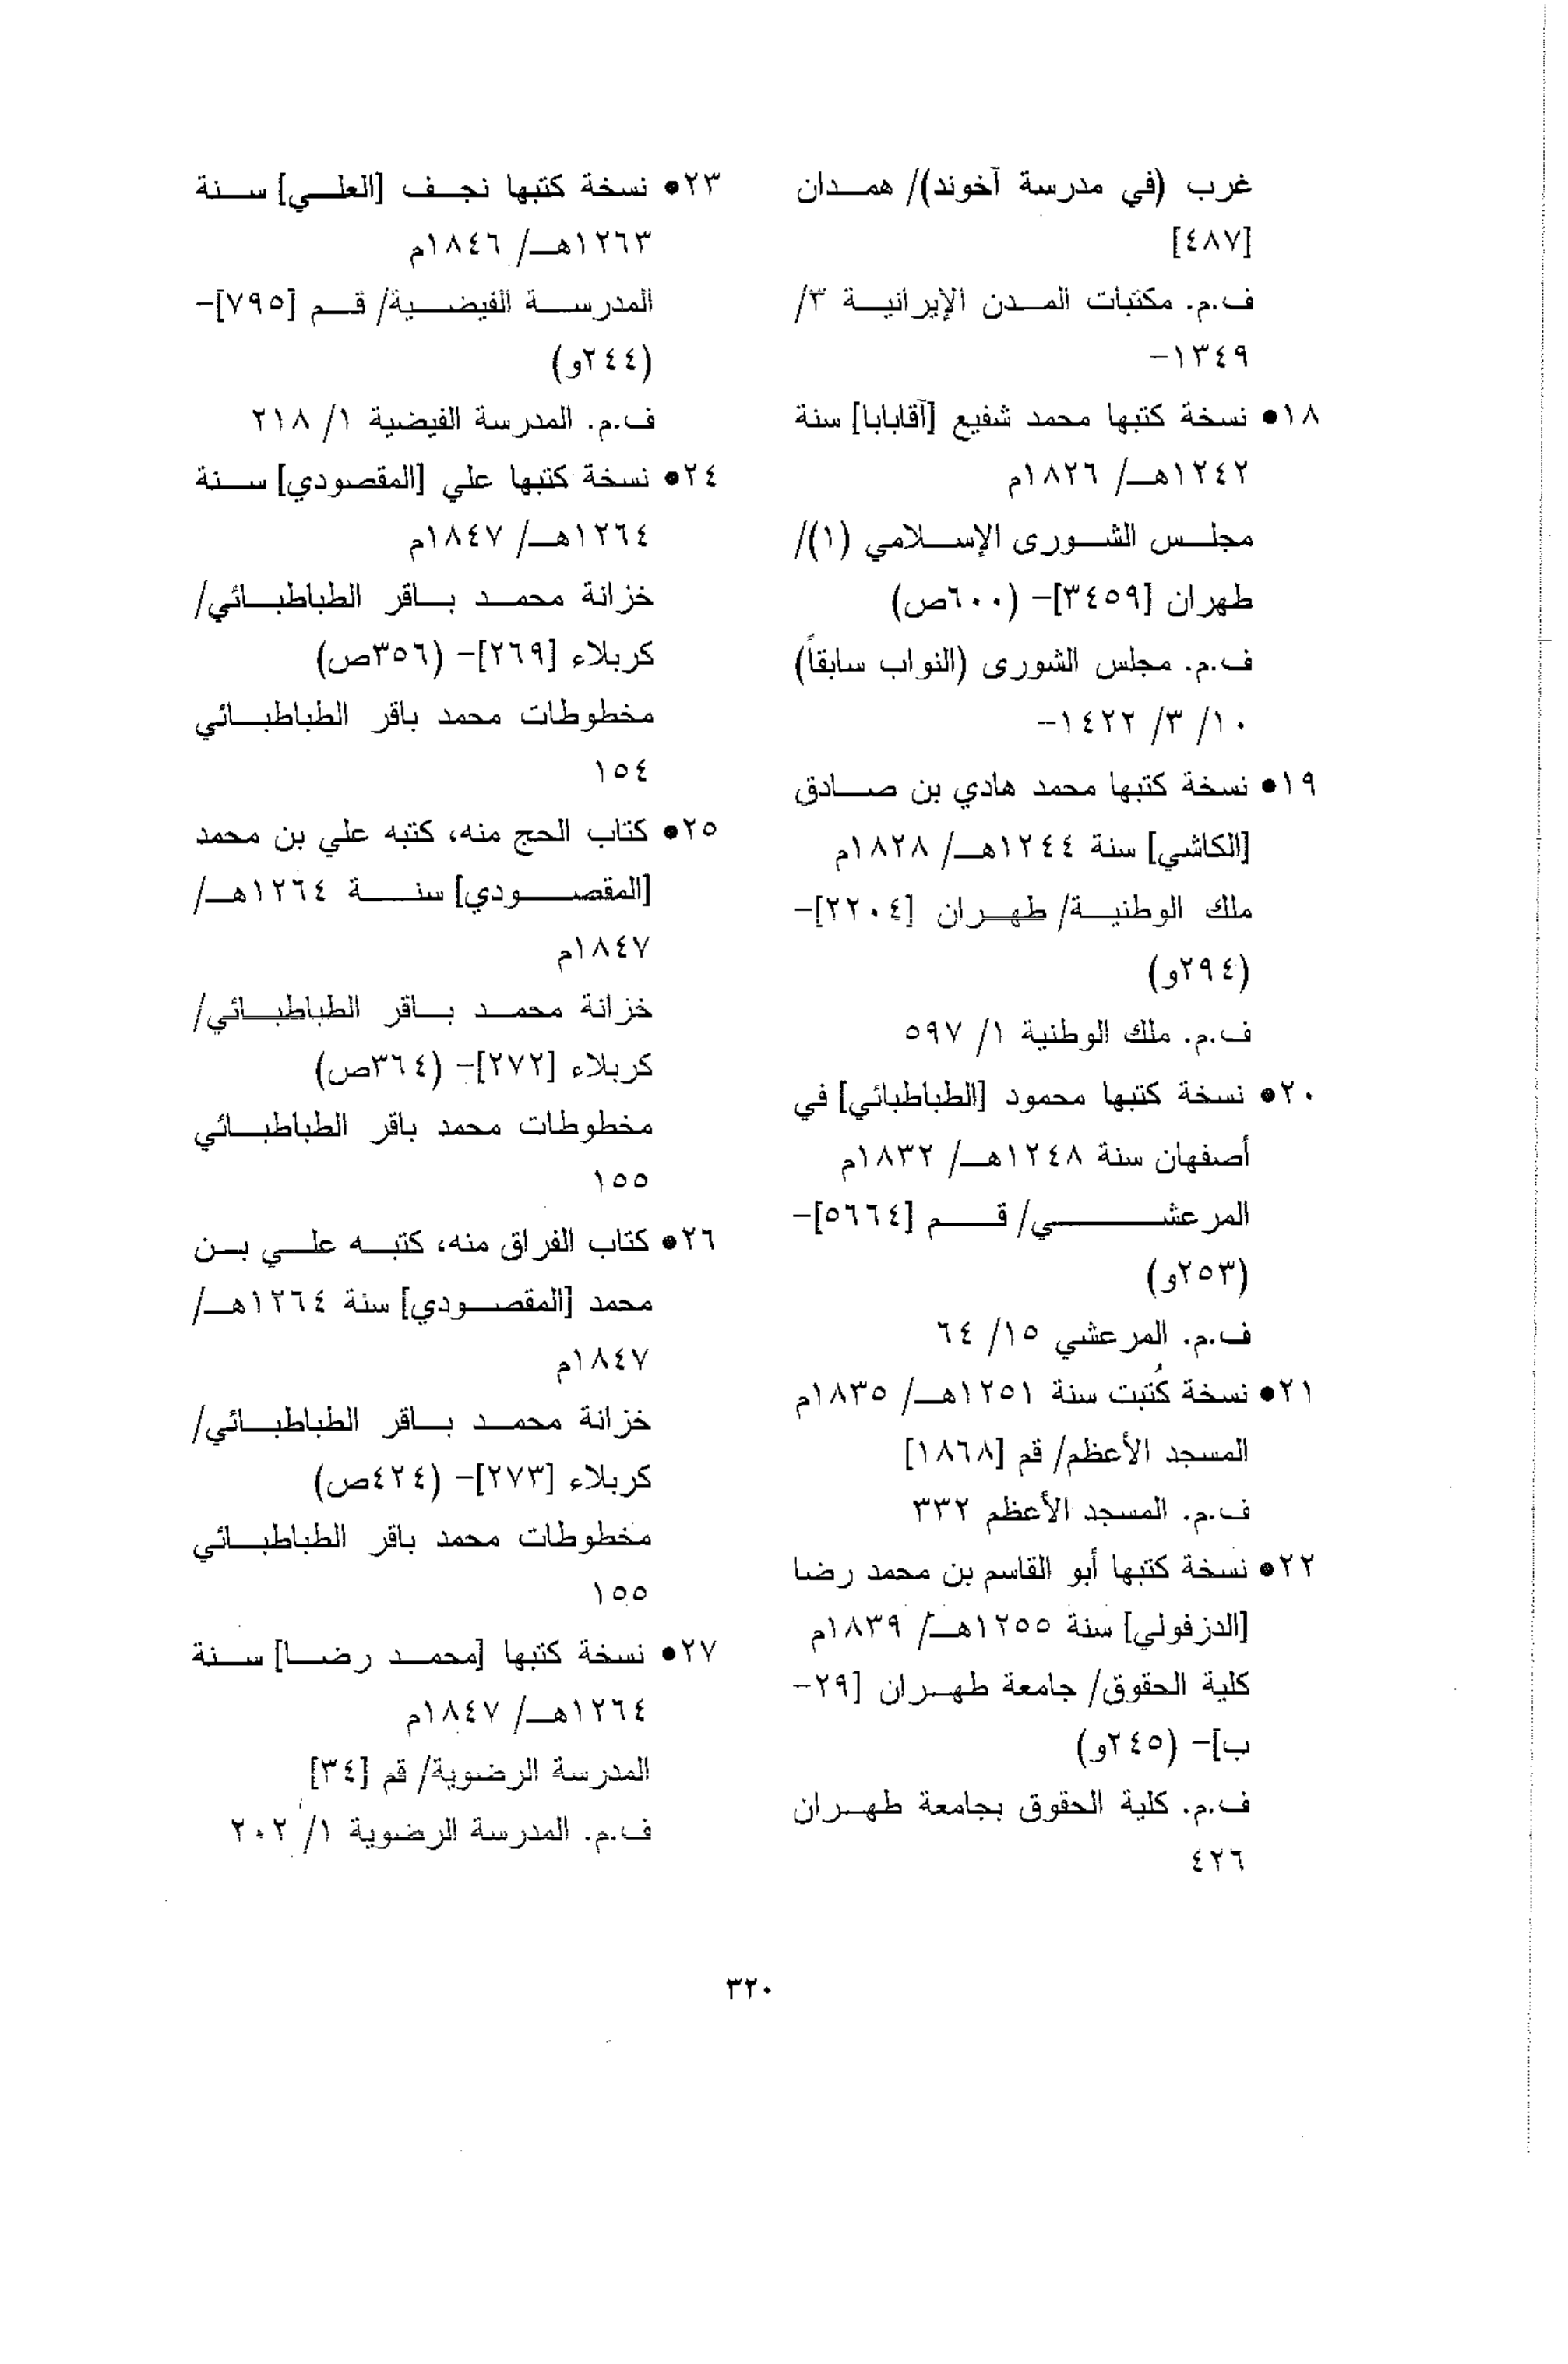 غرب (في مدرسة آخوند)/ همدان
[٤٨٧]
ف.م. مكتبات المدن الإيرانية ٣/
١٣٤٩-
١٨• نسخة كتبها محمد شفيع [آقابابا] سنة
١٢٤٢هـ/ ١٨٢٦م
مجلس الشورى الإسلامي (١)/
طهران [٣٤٥٩]- (٦٠٠ص)
ف.م. مجلس الشورى (النواب سابقاً)
١٠/ ٣/ ١٤٢٢-
١٩• نسخة كتبها محمد هادي بن صادق
[الكاشي] سنة ١٢٤٤هـ/ ١٨٢٨م
ملك الوطنية/ طهران [٢٢٠٤]-
(٢٩٤و)
ف.م. ملك الوطنية ١/ ٥٩٧
٢٠• نسخة كتبها محمود [الطباطبائي] في
أصفهان سنة ١٢٤٨هـ/ ١٨٣٢م
المرعشي/ قم [٥٦٦٤]-
(٢٥٣و)
ف.م. المرعشي ١٥/ ٦٤
٢١• نسخة كُتبت سنة ١٢٥١هـ/ ١٨٣٥م
المسجد الأعظم/ قم [١٨٦٨]
ف.م. المسجد الأعظم ٣٣٢
٢٢• نسخة كتبها أبو القاسم بن محمد رضا
[الدزفولي] سنة ١٢٥٥هـ/ ١٨٣٩م
كلية الحقوق/ جامعة طهران [٢٩-
ب]- (٢٤٥و)
ف.م. كلية الحقوق بجامعة طهران
٤٢٦
٢٣• نسخة كتبها نجف [العلي] سنة
١٢٦٣هـ/ ١٨٤٦م
المدرسة الفيضية/ قم [٧٩٥]-
(٢٤٤و)
ف.م. المدرسة الفيضية ١/ ٢١٨
٢٤• نسخة كتبها علي [المقصودي] سنة
١٢٦٤هـ/ ١٨٤٧م
خزانة محمد باقر الطباطبائي/
كربلاء [٢٦٩]- (٣٥٦ص)
مخطوطات محمد باقر الطباطبائي
١٥٤
٢٥• كتاب الحج منه، كتبه علي بن محمد
[المقصودي] سنة ١٢٦٤هـ/
١٨٤٧م
خزانة محمد باقر الطباطبائي/
كربلاء [٢٧٢]- (٣٦٤ص)
مخطوطات محمد باقر الطباطبائي
١٥٥
٢٦• كتاب الفراق منه، كتبه علي بن
محمد [المقصودي] سنة ١٢٦٤هـ/
١٨٤٧م
خزانة محمد باقر الطباطبائي/
كربلاء [٢٧٣]- (٤٢٤ص)
مخطوطات محمد باقر الطباطبائي
١٥٥
٢٧• نسخة كتبها [محمد رضا] سنة
١٢٦٤هـ/ ١٨٤٧م
المدرسة الرضوية/ قم [٣٤]
ف.م. المدرسة الرضوية ١/ ٢٠٢
٣٢٠